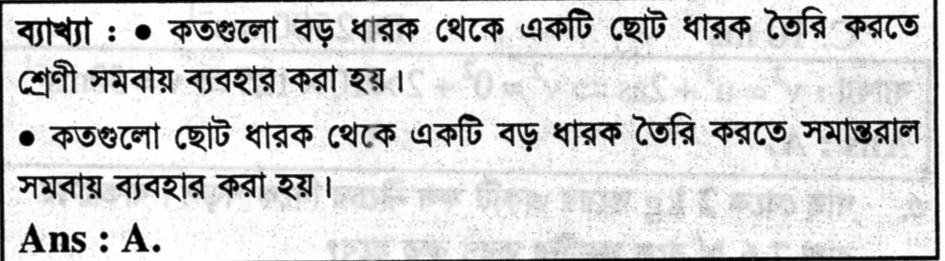 ব্যাখ্যা : ● কতগুলো বড় ধারক থেকে একটি ছোট ধারক তৈরি করতে
শ্রেণী সমবায় ব্যবহার করা হয়।
● কতগুলো ছোট ধারক থেকে একটি বড় ধারক তৈরি করতে সমান্তরাল
সমবায় ব্যবহার করা হয়।
Ans : A.